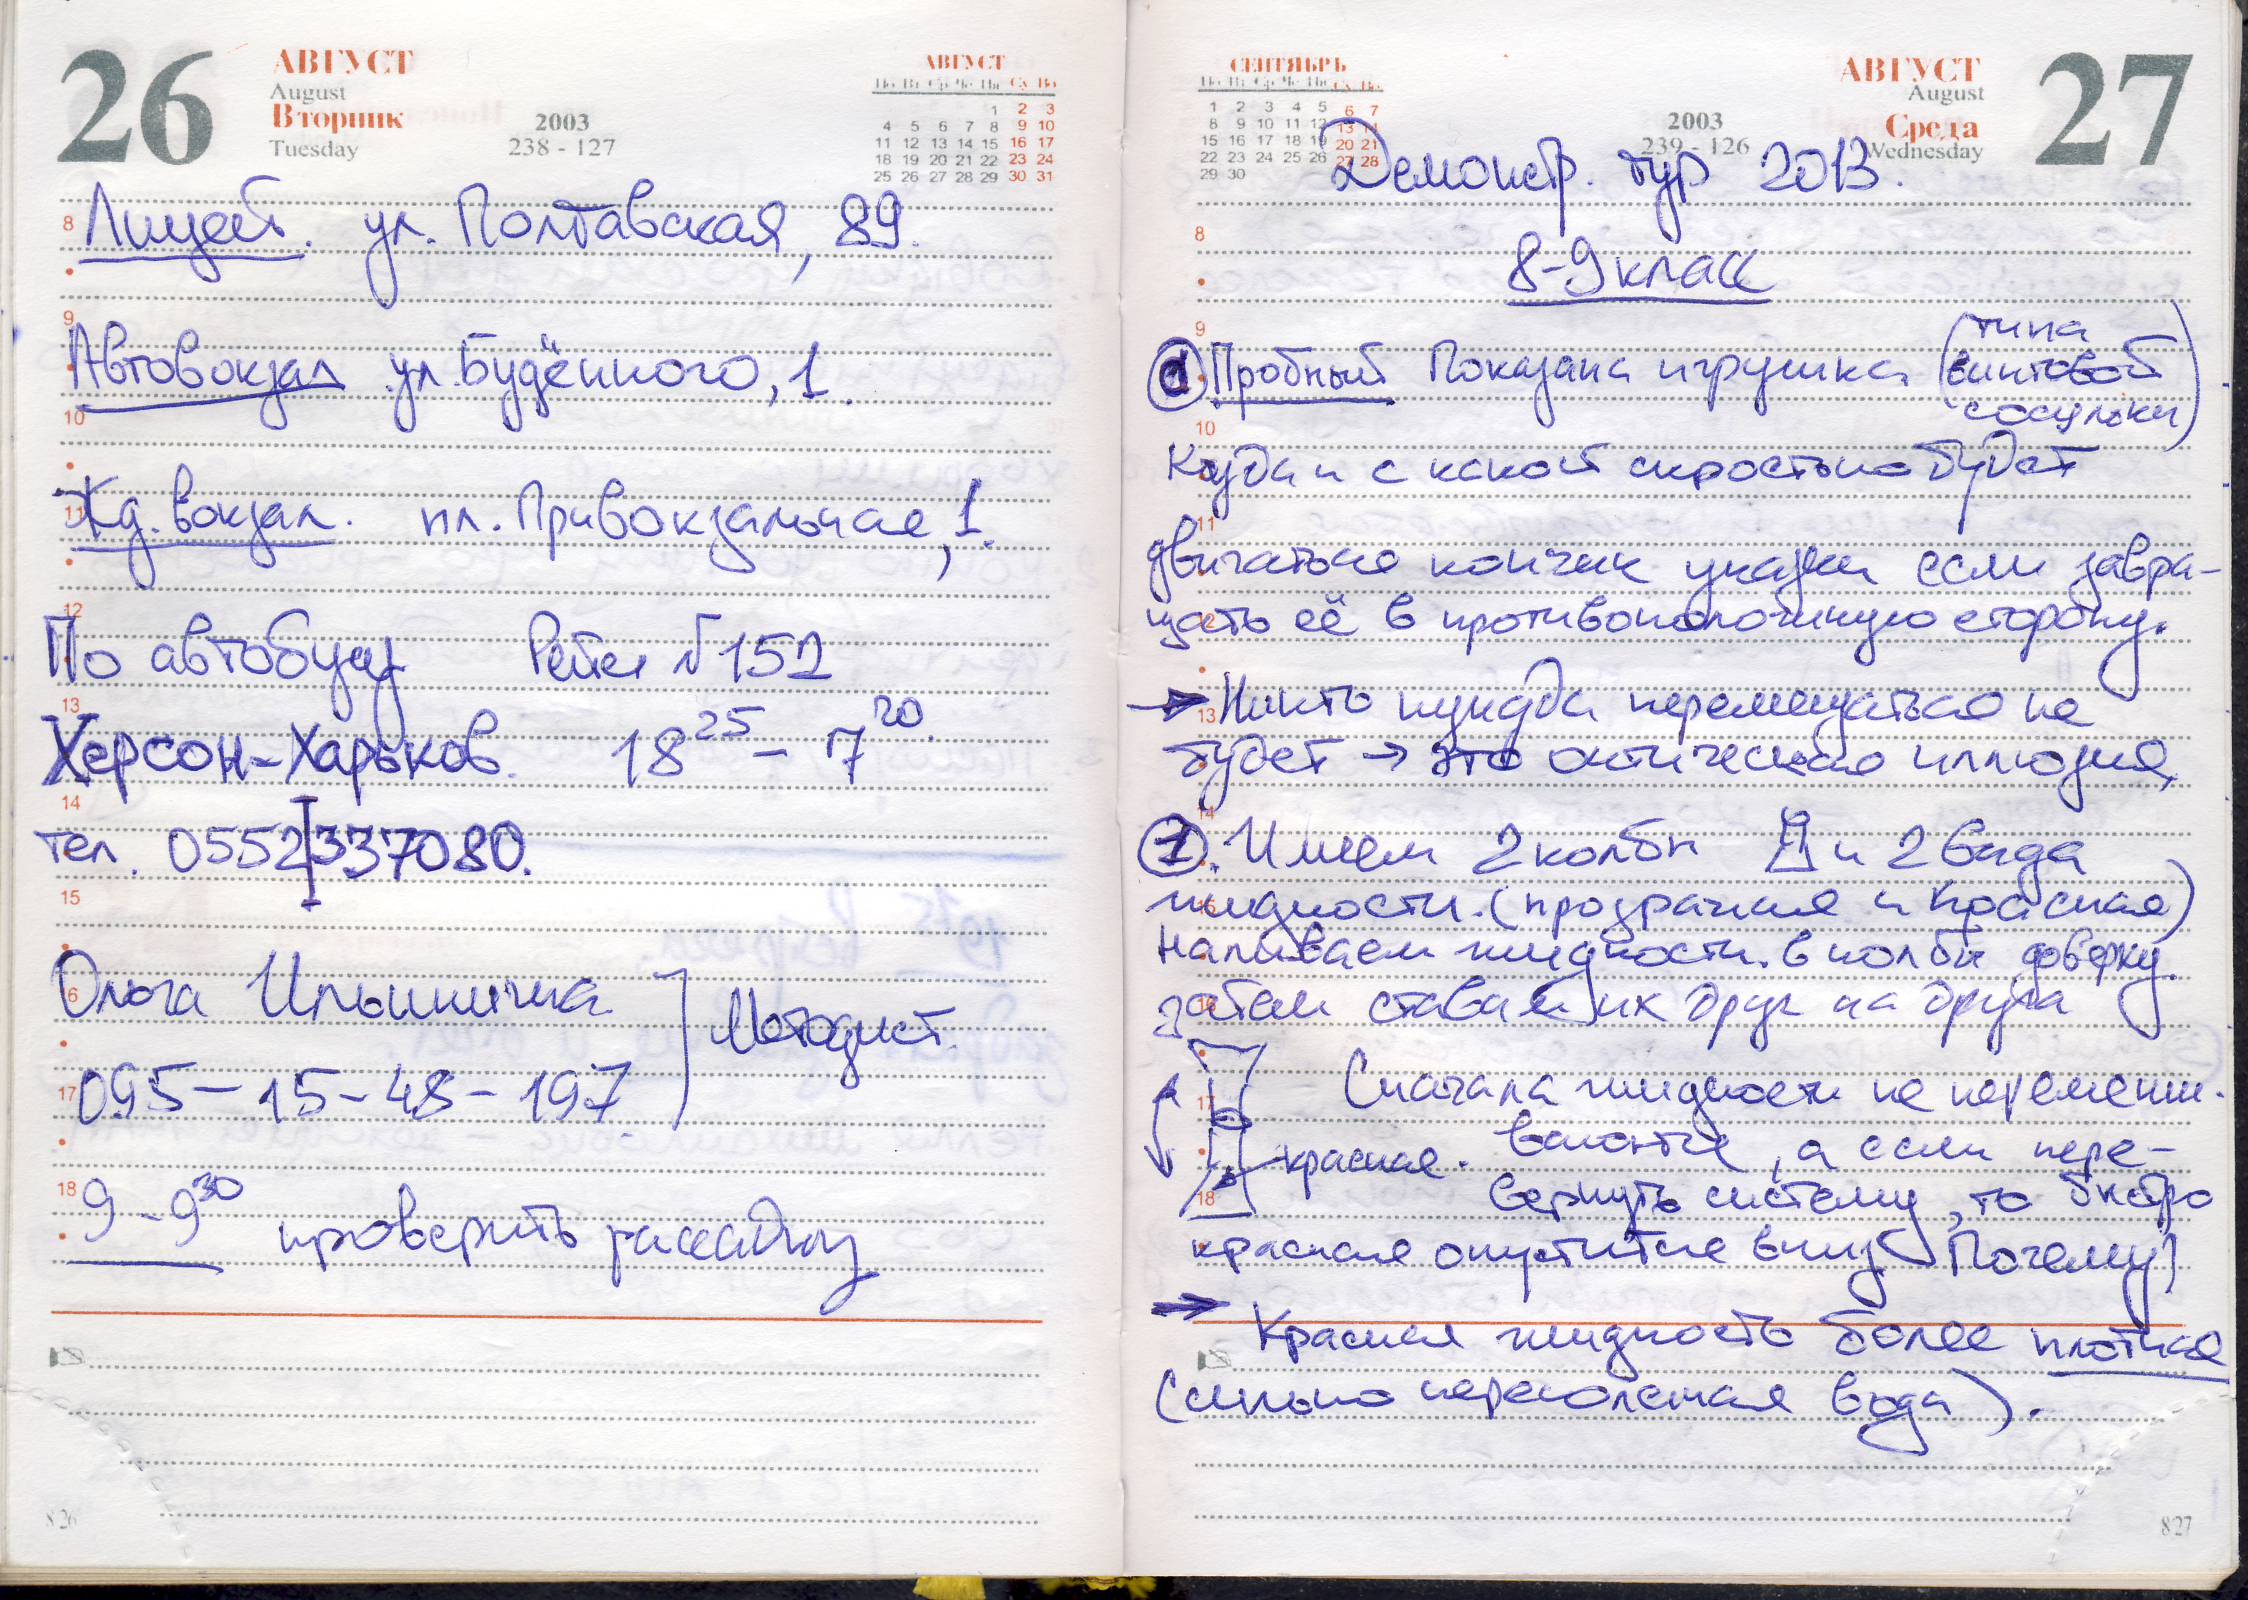 26
АВГУСТ
August
Вторник
Tuesday
2003
238 - 127
АВГУСТ
Пн Вт Ср Че Пт Су Во
1 2 3
4 5 6 7 8 9 10
11 12 13 14 15 16 17
18 19 20 21 22 23 24
25 26 27 28 29 30 31
8 Лицей. ул. Полтавская, 89.
9
Автовокзал ул. Будённого, 1.
10
11 Жд. вокзал. пл. Привокзальная, 1.
12
По автобусу Рейс №152
13
Херсон-Харьков. 18 25 - 7 20.
14
тел. 0552 337080.
15
16 Ольга Ильинична
Методист.
17 095-15-48-197
18 9-9 30 проверить рассадку
826
СЕНТЯБРЬ
Пн Вт Ср Че Пт Су Во
1 2 3 4 5 6 7
8 9 10 11 12 13 14
15 16 17 18 19 20 21
22 23 24 25 26 27 28
29 30
2003
239 - 126
АВГУСТ
August
Среда
Wednesday
27
Демонстр. тур 2013.
8
8-9 класс
9
Пробный Показана игрушка (типа винтовой сосульки)
10
Куда и с какой скоростью будет
11
двигаться кончик указки если завра-
12
щать её в противоположную сторону.
13 → Никто никуда перемещаться не
будет → это оптическая иллюзия,
14
1. Имеем 2 колбы и 2 вида
15
жидкости. (прозрачная и красная)
Наливаем жидкости в колбы доверху.
16
затем ставим их друг на друга
17
Сначала жидкости не перемеши-
красная. ваются, а если пере-
18
вернуть систему, то быстро
красная опустится вниз. Почему?
→ Красная жидкость более плотная
(сильно пересоленая вода).
827